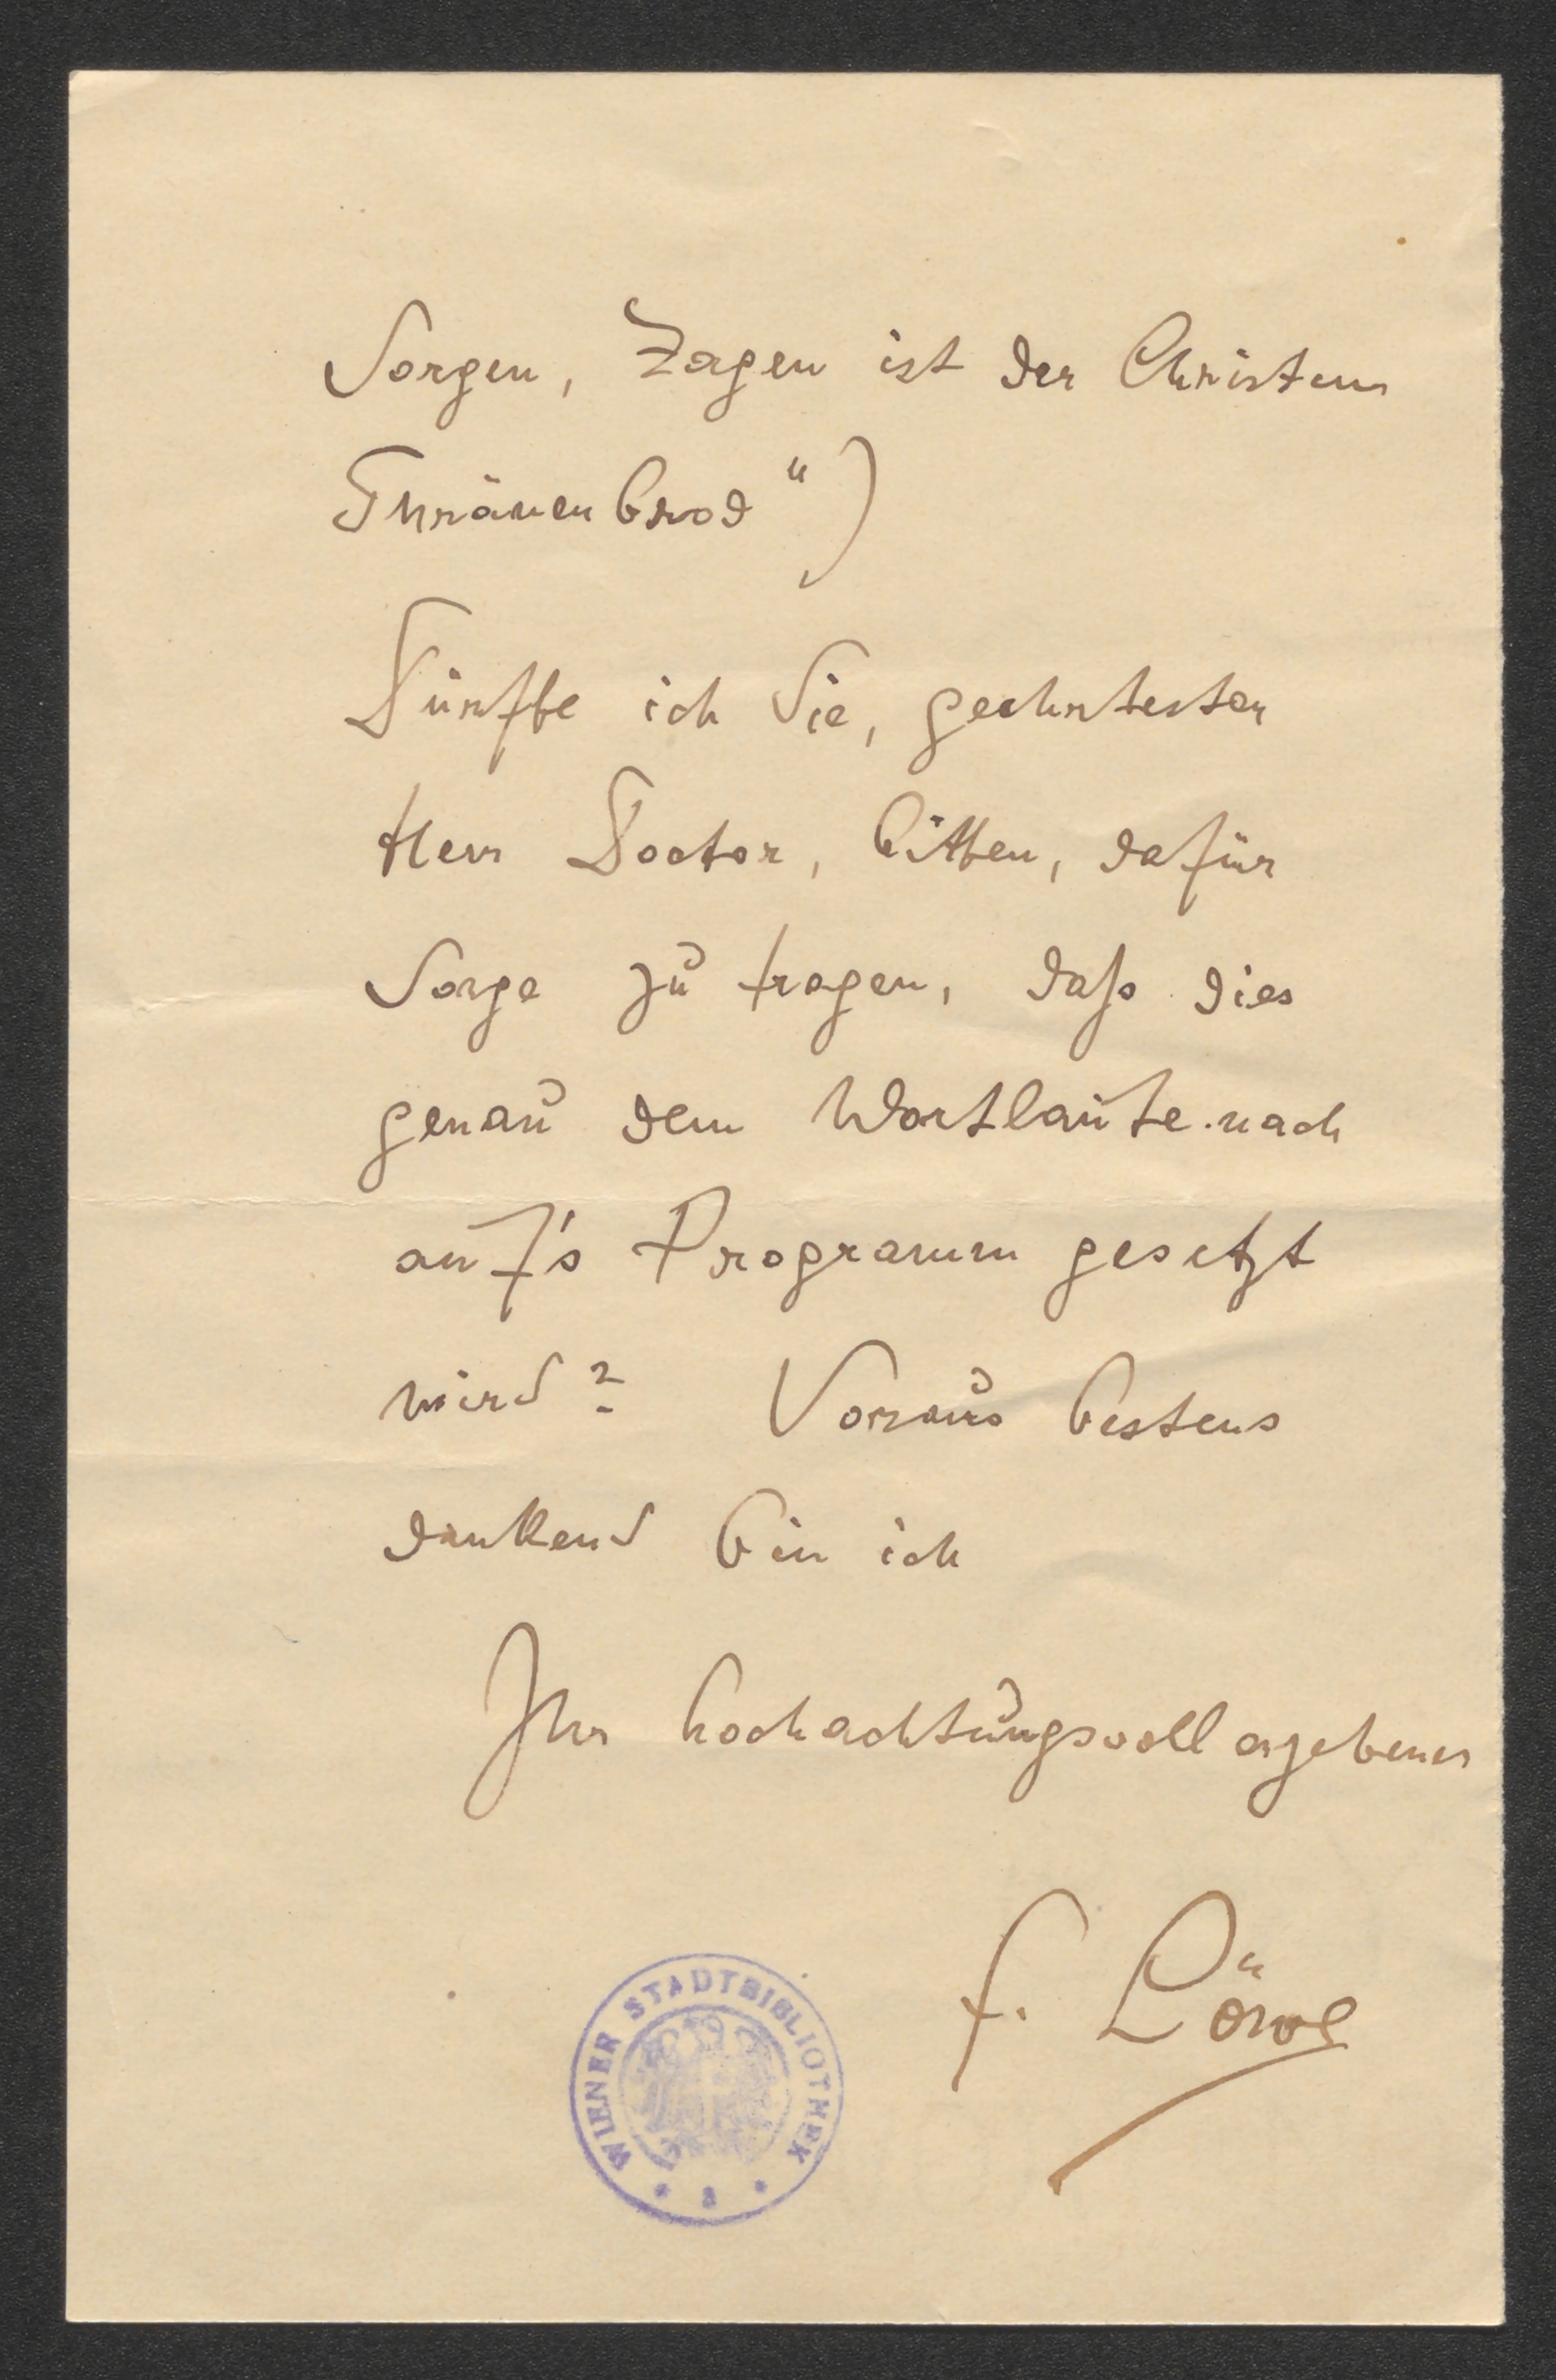 Sorgen, Zagen ist der Christen
Thränenbrod")
Dürfte ich Sie, geehrtester
Herr Doctor, bitten, dafür
Sorge zu tragen, daß dies
genau dem Wortlaute nach
auf's Programm gesetzt
wird? Voraus bestens
dankend bin ich
Ihr hochachtungsvoll ergebener
F. Löwe
WIENER STADTBIBLIOTHEK